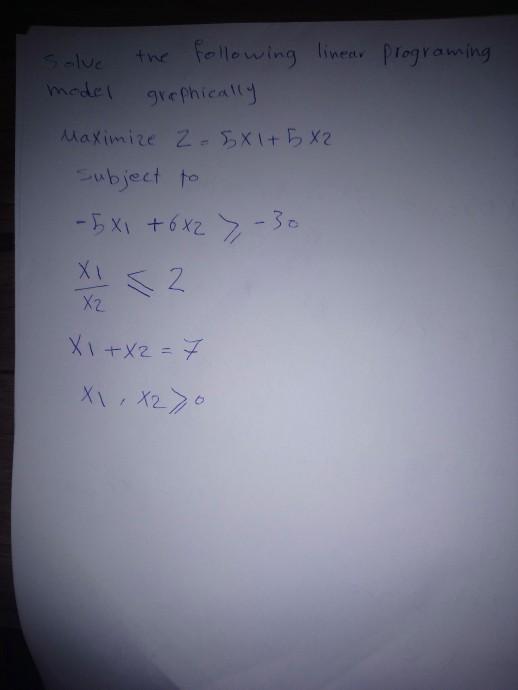 Solve the following linear programing
model grephically
Maximize Z = 5X1 + 5 X2
Subject to
-5 X1 + 6 X2 ≥ -30
X1
X2 ≤ 2
X1 + X2 = 7
X1 , X2 ≥ 0